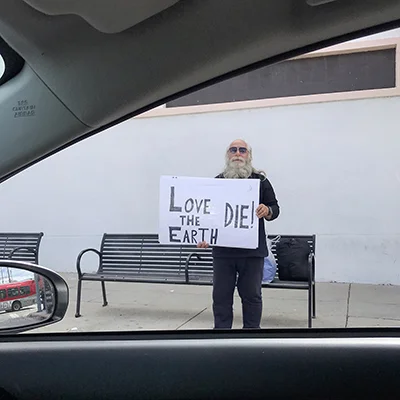 LOVE
THE DIE!
EARTH